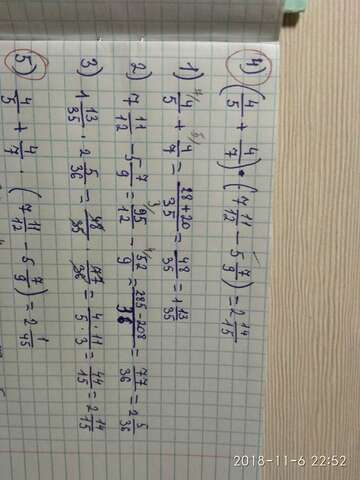 4) (4/5 + 4/7) · (7 11/12 − 5 7/9) = 2 14/15
1) 4/5 + 4/7 = 28+20/35 = 48/35 = 1 13/35
2) 7 11/12 − 5 7/9 = 95/12 − 52/9 = 285−208/36 = 77/36 = 2 5/36
3) 1 13/35 · 2 5/36 = 48/35 · 77/36 = 4·11/5·3 = 44/15 = 2 14/15
5) 4/5 + 4/7 · (7 11/12 − 5 7/9) = 2 1/45
2018-11-6 22:52